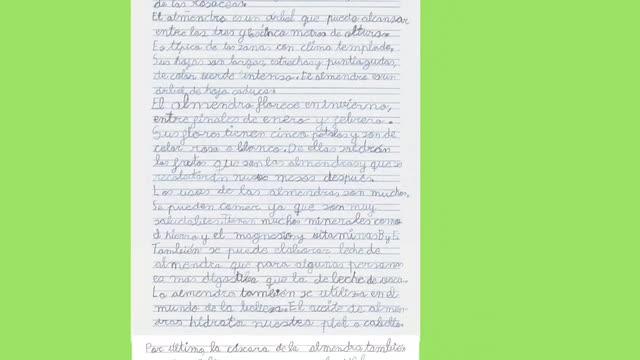 de las rosáceas.
El almendro es un árbol que puede alcanzar
entre los tres y cinco metros de altura.
Es típico de las zonas con clima templado.
Sus hojas son largas, estrechas y puntiagudas,
de color verde intenso. El almendro es un
árbol de hoja caduca.
El almendro florece en invierno,
entre finales de enero y febrero.
Sus flores tienen cinco pétalos y son de
color rosa o blanco. De ellas saldrán
los frutos que son las almendras y que se
recolectarán nueve meses después.
Los usos de las almendras son muchos.
Se pueden comer ya que son muy
saludables. Tienen muchos minerales como
el hierro y el magnesio y vitaminas B y E.
También se puede elaborar leche de
almendra que para algunas personas
es más digestiva que la de leche de vaca.
La almendra también se utiliza en el
mundo de la belleza. El aceite de almen-
dras hidrata nuestra piel o cabello.
Por último la cáscara de la almendra también